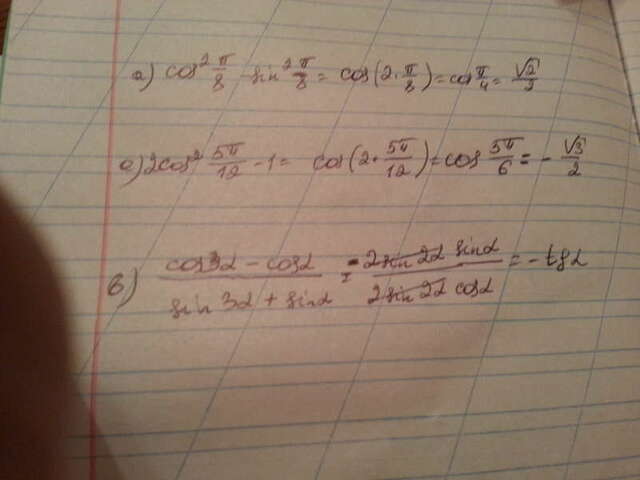 a) cos² π/8 sin² π/8 = cos(2·π/8) = cos π/4 = √2/2
e) 2cos² 5π/12 - 1 = cos(2·5π/12) = cos 5π/6 = - √3/2
б) (cos3α - cosα)/(sin 3α + sinα) = (-2 sin 2α sinα)/(2 sin 2α cosα) = - tgα